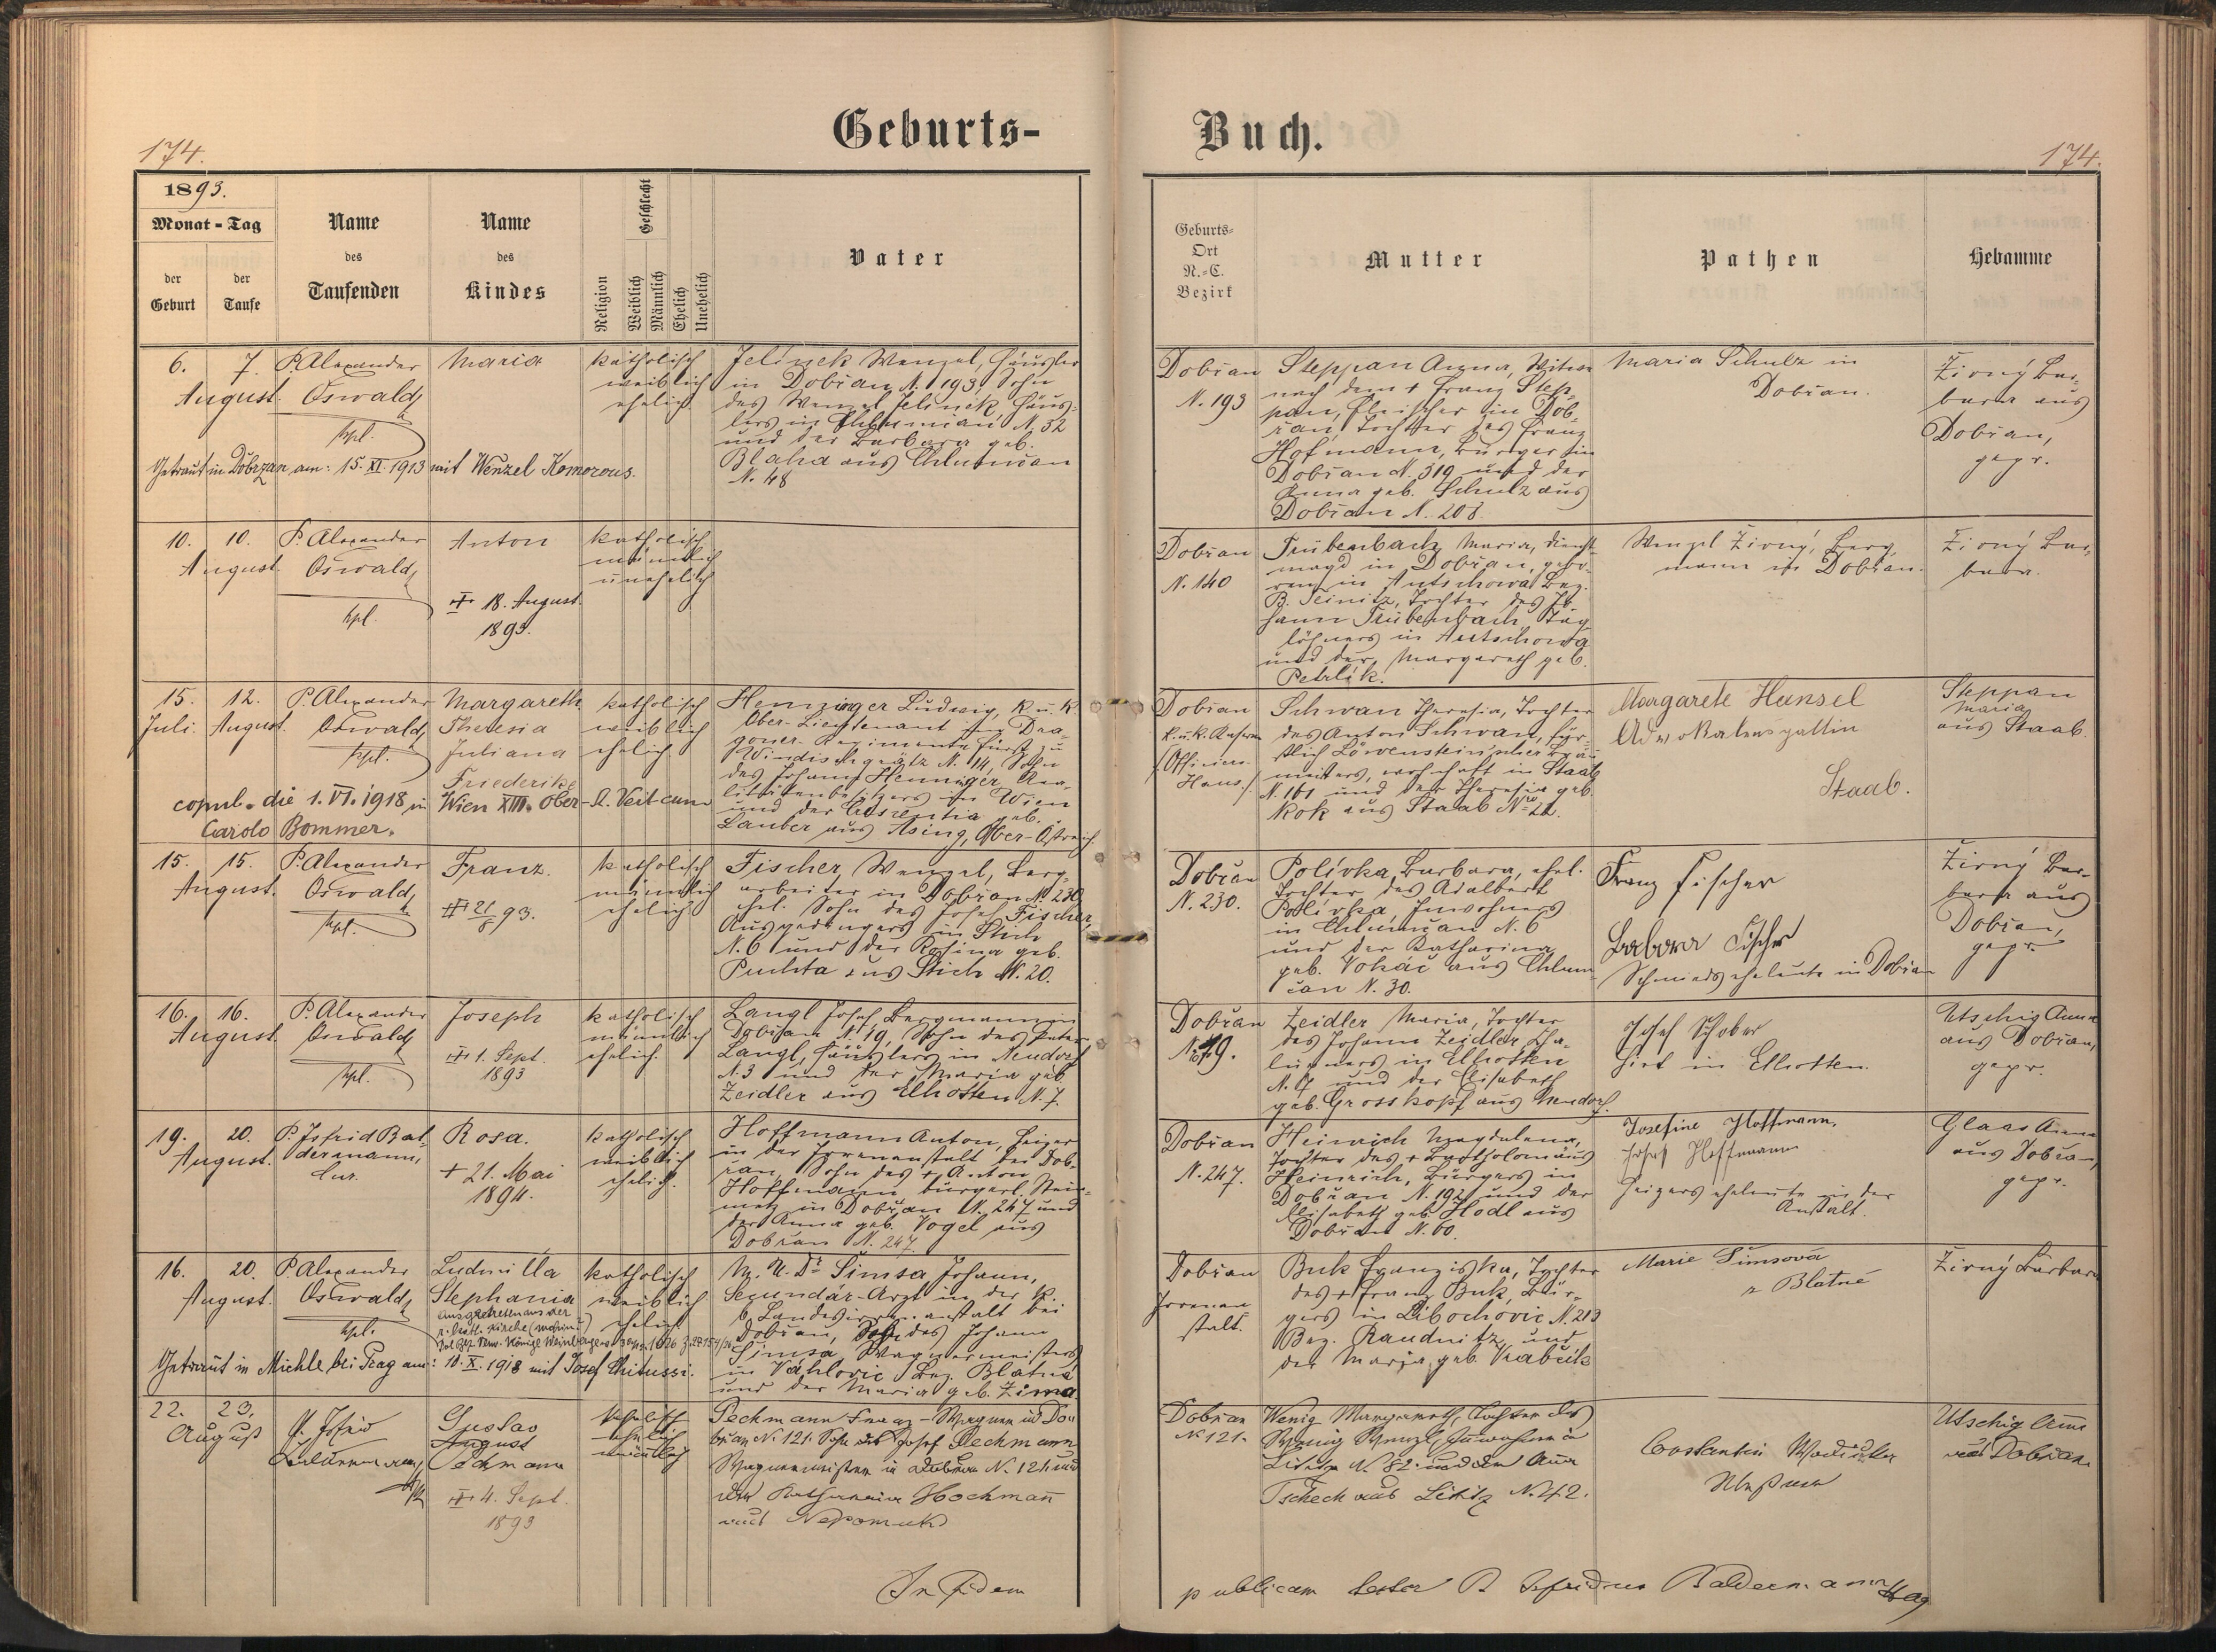 Geburts-
Buch.
174.
174.
1893.
Monat - Tag
der Geburt
der Taufe
Name des Taufenden
Name des Kindes
Religion
Geschlecht
Weiblich
Männlich
Ehelich
Unehelich
Vater
Geburts-
Ort
N.-C.
Bezirk
Mutter
Pathen
Hebamme
6. 7.
August.
P. Alexander
Oswald,
kpl.
Maria
katholisch
weiblich
ehelich.
Jelinek Wenzel, Häusler
in Dobřan N. 193, Sohn
des Wenzel Jelinek, Häus-
lers in Chlumčan N. 32
und der Barbara geb.
Blaha aus Chlumčan
N. 48
Getraut in Dobrzan am: 15. XI. 1913 mit Wenzel Komorous.
Dobřan
N. 193
Steppan Anna, Witwe
nach dem + Franz Step-
pan, Fleischer in Dob-
řan, Tochter des Franz
Hofmann, Bürger in
Dobřan N. 319 und der
Anna geb. Schulz aus
Dobřan N. 208.
Maria Schulz in
Dobřan.
Žirný Bar-
bara aus
Dobřan,
gepr.
10. 10.
August
P. Alexander
Oswald,
kpl.
Anton
18. August
1893.
katholisch
männlich
unehelich
Dobřan
N. 140
Trübenbach Maria, Dienst-
magd in Dobřan, gebo-
ren in Autschowa Bez.
B. Teinitz, Tochter des Jo-
hann Trübenbach, Tag-
löhners in Autschowa
und der Margareth geb.
Petrlík.
Wenzel Žirný, Berg-
mann in Dobřan.
Žirný Bar-
bara.
15. 12.
Juli. August.
P. Alexander
Oswald,
kpl.
Margareth
Theresia
Juliana
Friederike
katholisch
weiblich
ehelich.
Henninger Ludwig, k. u. k.
Ober-Lieutenant im Dra-
goner-Regimente Fürst zu
Windischgrätz N. 14, Sohn
des Johann Henninger, Rea-
litätenbesitzers in Wien
und der geb.
Lauber aus Asing, Ober-Östreich
copul. die 1. VI. 1918 in Wien XIII. Ober-St. Veit cum
Carolo Bommer.
Dobřan
k. u. k. Kasern
/Officiers-
Haus./
Schwan Theresia, Tochter
des Anton Schwan, für-
stlich Löwensteinscher Bräu-
meisters, wohnhaft in Staab
N. 161 und der Theresia geb.
Kok aus Staab Nro 22.
Margarete Hunsel
Advokatensgattin
Staab.
Steppan
Maria
aus Staab.
15. 15.
August.
P. Alexander
Oswald,
kpl.
Franz.
21/8 93.
katholisch
männlich
ehelich
Fischer Wenzel, Berg-
arbeiter in Dobřan N. 230,
ehel. Sohn des Josef Fischer,
Ausgedingers in Stich
N. 6 und der Rosina geb.
Puchta aus Stich N. 20.
Dobřan
N. 230.
Polívka Barbara, ehel.
Tochter des Adalbert
Polívka, Inwohners
in Chlumčan N. 6
und der Katharina
geb. Vokáč aus Chlum-
čan N. 30.
Franz Fischer
Barbara Fischer
Schmiedseheleute in Dobřan
Žirný Bar-
bara aus
Dobřan,
gepr.
16. 16.
August.
P. Alexander
Oswald,
kpl.
Joseph
1. Sept.
1893
katholisch
männlich
ehelich.
Langl Josef, Bergmann in
Dobřan N. 19, Sohn des Peter
Langl, Häuslers in Neudorf
N. 3 und der Maria geb.
Zeidler aus Elhotten N. 7.
Dobřan
N. 19.
Zeidler Maria, Tochter
des Johann Zeidler,
in Elhotten
N. 7 und der Elisabeth
geb. Grosskopf aus Neudorf.
Josef Schober
Hirt in Elhotten.
Utschig Anna
aus Dobřan,
gepr.
19. 20.
August.
P. Josfrid Bal-
dermann,
Rosa.
+ 21. Mai
1894.
katholisch
weiblich
ehelich.
Hoffmann Anton, Heizer
in der Irrenanstalt bei Dob-
řan, Sohn des + Anton
Hoffmann bürgerl. Stein-
metz in Dobřan N. 247 und
der Anna geb. Vogel aus
Dobřan N. 247.
Dobřan
N. 247.
Heinrich Magdalena,
Tochter des + Bartholomäus
Heinrich, Bürgers in
Dobřan N. 192 und der
Elisabeth geb. Hodl aus
Dobřan N. 60.
Josefine Hoffmann.
Josef Hoffmann
Heizerseheleute in der
Anstalt.
Glaas Anna
aus Dobřan,
gepr.
16. 20.
August.
P. Alexander
Oswald,
kpl.
Ludmilla
Stephania
ausgetreten aus der
r. kath. Kirche (wohin?)
katholisch
weiblich
ehelich
M. U. Dr Šimsa Johann,
Secundär-Arzt in der k.
b. Landesirrenanstalt bei
Dobřan, Sohn des Johann
Šimsa, Wagnermeisters
in Váhlovic Bez. Blatná
und der Maria geb. Zima.
Getraut in Michle bei Prag am: 10. X. 1918 mit Josef Chitussi.
Dobřan
Irrenan-
stalt.
Buk Franziska, Tochter
des + Franz Buk, Bür-
gers in Libochovic N. 213
Bez. Raudnitz und
der Maria geb. Vrabčík
Marie Šimsová
z Blatné
Žirný Barbara
22. 23.
August
P. Josfrid
Gustav
August
Pechmann
4. Sept.
1893
katholisch
ehelich
männlich
Pechmann Franz - Wagner in Do-
břan N. 121. Sohn des Josef Pechmann
Wagnermeister in Dobřan N. 121 und
der Katharina Hochmann
aus Nepomuk
Dobřan
N. 121.
Wenig Margareth, Tochter des
Wenig Wenzl, Inwohner in
Lititz N. 82. und der Anna
Tscheck aus Lititz N. 42.
Constantin
Utschig Anna
aus Dobřan.
In Fidem
publicam testor P. Josfridus Baldermann